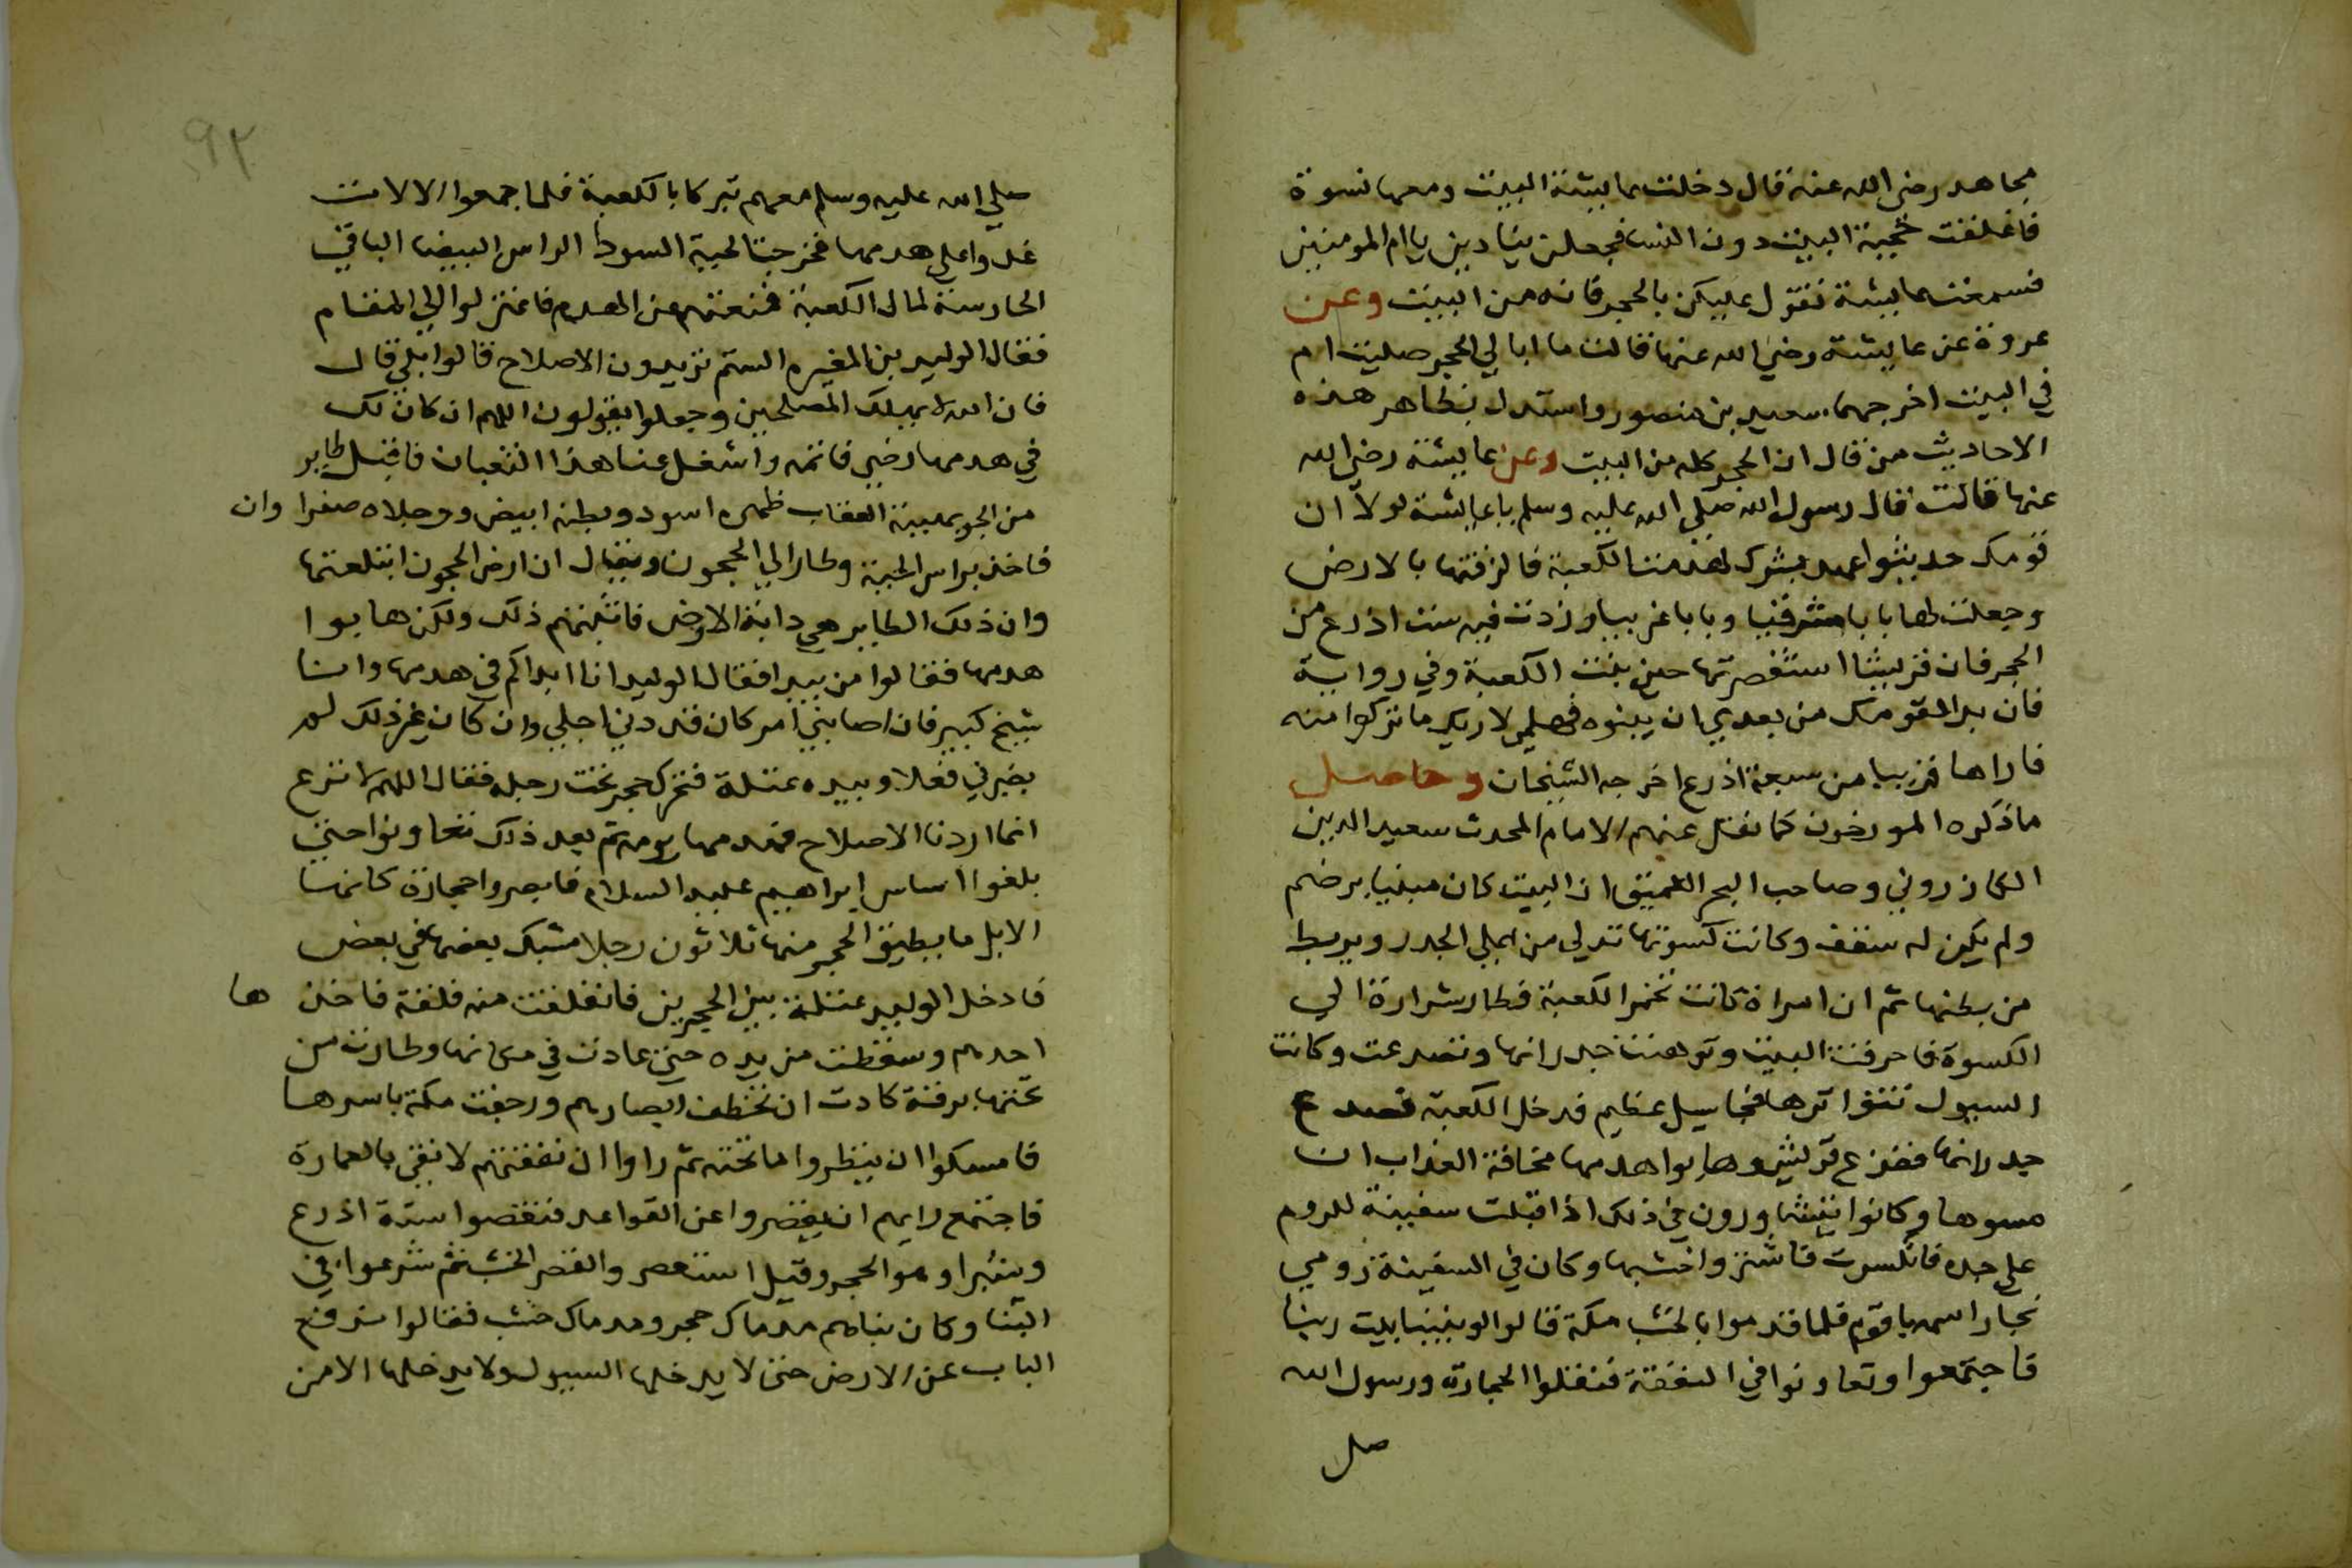 مجاهد رضي الله عنه قال دخلت عايشة البيت ومعها نسوة
فاغلقت حجبة البيت دون النسا فجعلن ينادين يا ام المومنين
فسمعت عايشة تقول عليكن بالحجر فانه من البيت وعن
عروة عن عايشة رضي الله عنها قالت ما ابالي في الحجر صليت ام
في البيت اخرجهما سعيد بن منصور واستدل بظاهر هذه
الاحاديث من قال ان الحجر كله من البيت وعن عايشة رضي الله
عنها قالت قال رسول الله صلي الله عليه وسلم يا عايشة لولا ان
قومك حديثوا عهد بشرك لهدمت الكعبة فالزقتها بالارض
وجعلت لها بابا شرقيا وبابا غربيا وزدت فيه ست اذرع من
الحجر فان قريشا استقصرتها حين بنت الكعبة وفي رواية
فان بدا لقومك من بعدي ان يبنوه فهلمي لاريك ما تركوا منه
فاراها قريبا من سبعة اذرع اخرجه الشيخان وحاصل
ما ذكره المورخون كما نقل عنهم الامام المحدث سعيد الدين
الكازروني وصاحب البحر العميق ان البيت كان مبنيا برضم
ولم يكن له سقف وكانت كسوتها تدلي من اعلي الجدر ويربط
من بطنها ثم ان امراة كانت تجمر الكعبة فطار شرارة الي
الكسوة فاحرقت البيت وتوهنت جدرانها وتصدعت وكانت
السيول تتواترها فجا سيل عظيم فدخل الكعبة فصدع
جدرانها ففزع قريش وهابوا هدمها مخافة العذاب ان
مسوها وكانوا يتشاورون في ذلك اذ اقبلت سفينة للروم
علي جده فانكسرت فاشتروا خشبها وكان في السفينة رومي
نجار اسمه ياقوم فلما قدموا بالخشب مكة قالوا لو بنينا بيت ربنا
فاجتمعوا وتعاونوا في النفقة فنقلوا الحجارة ورسول الله
صل
٩٢
صلي الله عليه وسلم معهم تبركا بالكعبة فلما جمعوا الالات
غدوا علي هدمها فخرجت الحية السودا الراس البيضا الباقي
الحارسة لمال الكعبة فمنعتهم عن الهدم فاعتزلوا الي المقام
فقال الوليد بن المغيره الستم تريدون الاصلاح قالوا بلي قال
فان الله لا يهلك المصلحين وجعلوا يقولون اللهم ان كان لك
في هدمها رضي فاتمه واشغل عنا هذا الثعبان فاقبل طاير
من الجو بهيئة العقاب ظهره اسود وبطنه ابيض ورجلاه صفرا وان
فاخذ براس الحية وطار الي الحجون ويقال ان ارض الحجون ابتلعتها
وان ذلك الطاير هي دابة الارض فانبئتهم ذلك ولكن هابوا
هدمها فقالوا من يبدا فقال الوليد انا ابداكم في هدمها وانا
شيخ كبير فان اصابني امر كان قد دني اجلي وان كان غير ذلك لم
يضرني فعلا وبيده عتلة فتحرك حجر تحت رجله فقال اللهم لا نرع
انما اردنا الاصلاح فهدمها يومه ثم بعد ذلك تعاونوا حتي
بلغوا اساس ابراهيم عليه السلام فابصروا حجارة كانها
الابل ما يطيق الحجر منها ثلاثون رجلا مشبك بعضها في بعض
فادخل الوليد عتلة بين الحجرين فانفلقت منه فلقة فاخذ ها
احدهم وسقطت من يده حتي عادت في مكانها وطارت من
تحتها برقة كادت ان تخطف ابصارهم ورجفت مكة باسرها
فامسكوا ان ينظروا ما تحته ثم راوا ان نفقتهم لا تفي بالعمارة
فاجتمع رايهم ان يقصروا عن القواعد فنقصوا ستة اذرع
وشبرا وهو الحجر وقيل استقصروا لقصر الخشب ثم شرعوا في
البنا وكان بناهم مدماك حجر ومدماك خشب فقالوا نرفع
الباب عن الارض حتي لا يدخلها السيول ولا يدخلها الا من